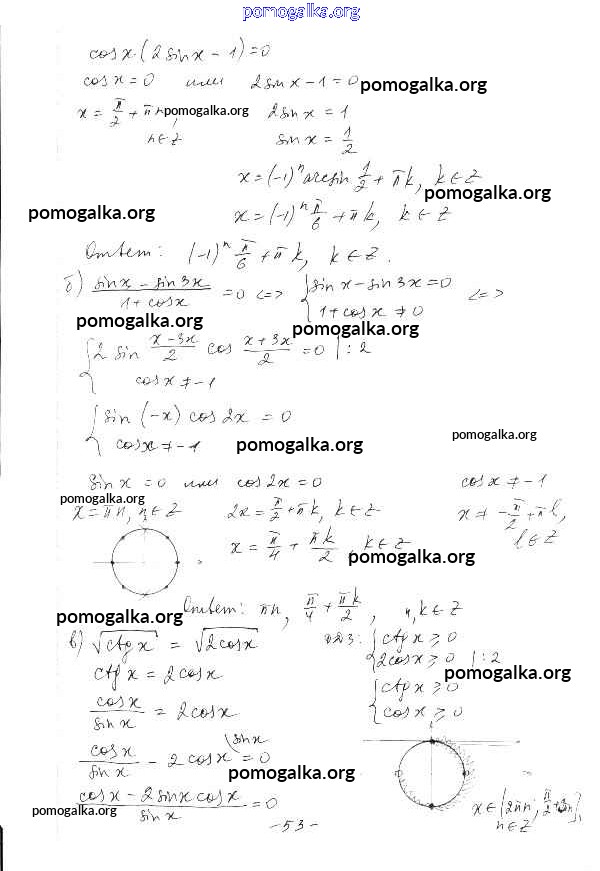 pomogalka.org
cos x (2 sin x - 1) = 0
cos x = 0 или 2 sin x - 1 = 0 pomogalka.org
x = π/2 + πn, pomogalka.org 2 sin x = 1
n ∈ Z sin x = 1/2
x = (-1)^n arcsin 1/2 + πk, k ∈ Z
pomogalka.org
pomogalka.org x = (-1)^n π/6 + πk, k ∈ Z
Ответ: (-1)^n π/6 + πk, k ∈ Z.
б) (sin x - sin 3x)/(1 + cos x) = 0 <=> { sin x - sin 3x = 0
1 + cos x ≠ 0 <=>
pomogalka.org pomogalka.org
{ 2 sin (x - 3x)/2 cos (x + 3x)/2 = 0 | : 2
cos x ≠ -1
{ sin (-x) cos 2x = 0
cos x ≠ -1 pomogalka.org pomogalka.org
sin x = 0 или cos 2x = 0 cos x ≠ -1
pomogalka.org
x = πn, n ∈ Z 2x = π/2 + πk, k ∈ Z x ≠ -π/2 + πl,
x = π/4 + πk/2, k ∈ Z l ∈ Z
pomogalka.org
Ответ: πn, π/4 + πk/2, n, k ∈ Z
pomogalka.org
в) √ctg x = √2cos x ОДЗ: { ctg x ≥ 0
2cos x ≥ 0 | : 2
ctg x = 2cos x pomogalka.org
{ ctg x ≥ 0
cos x ≥ 0
cos x/sin x = 2cos x
cos x/sin x - 2cos x \sin x = 0
pomogalka.org
(cos x - 2 sin x cos x)/sin x = 0
pomogalka.org
x ∈ [2πn; π/2 + 2πn],
n ∈ Z
- 53 -